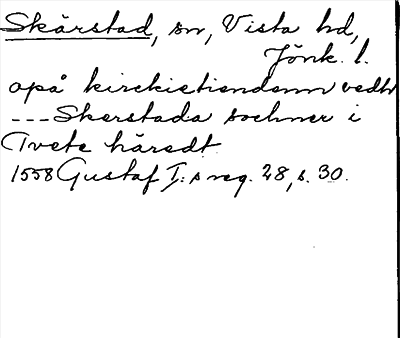 Skärstad, sn, Vista hd,
Jönk. l.
opå kirckietiendenn vedh
---Skerstada sochner i
Tvete häredt
1558 Gustaf I:s reg. 28, s. 30.